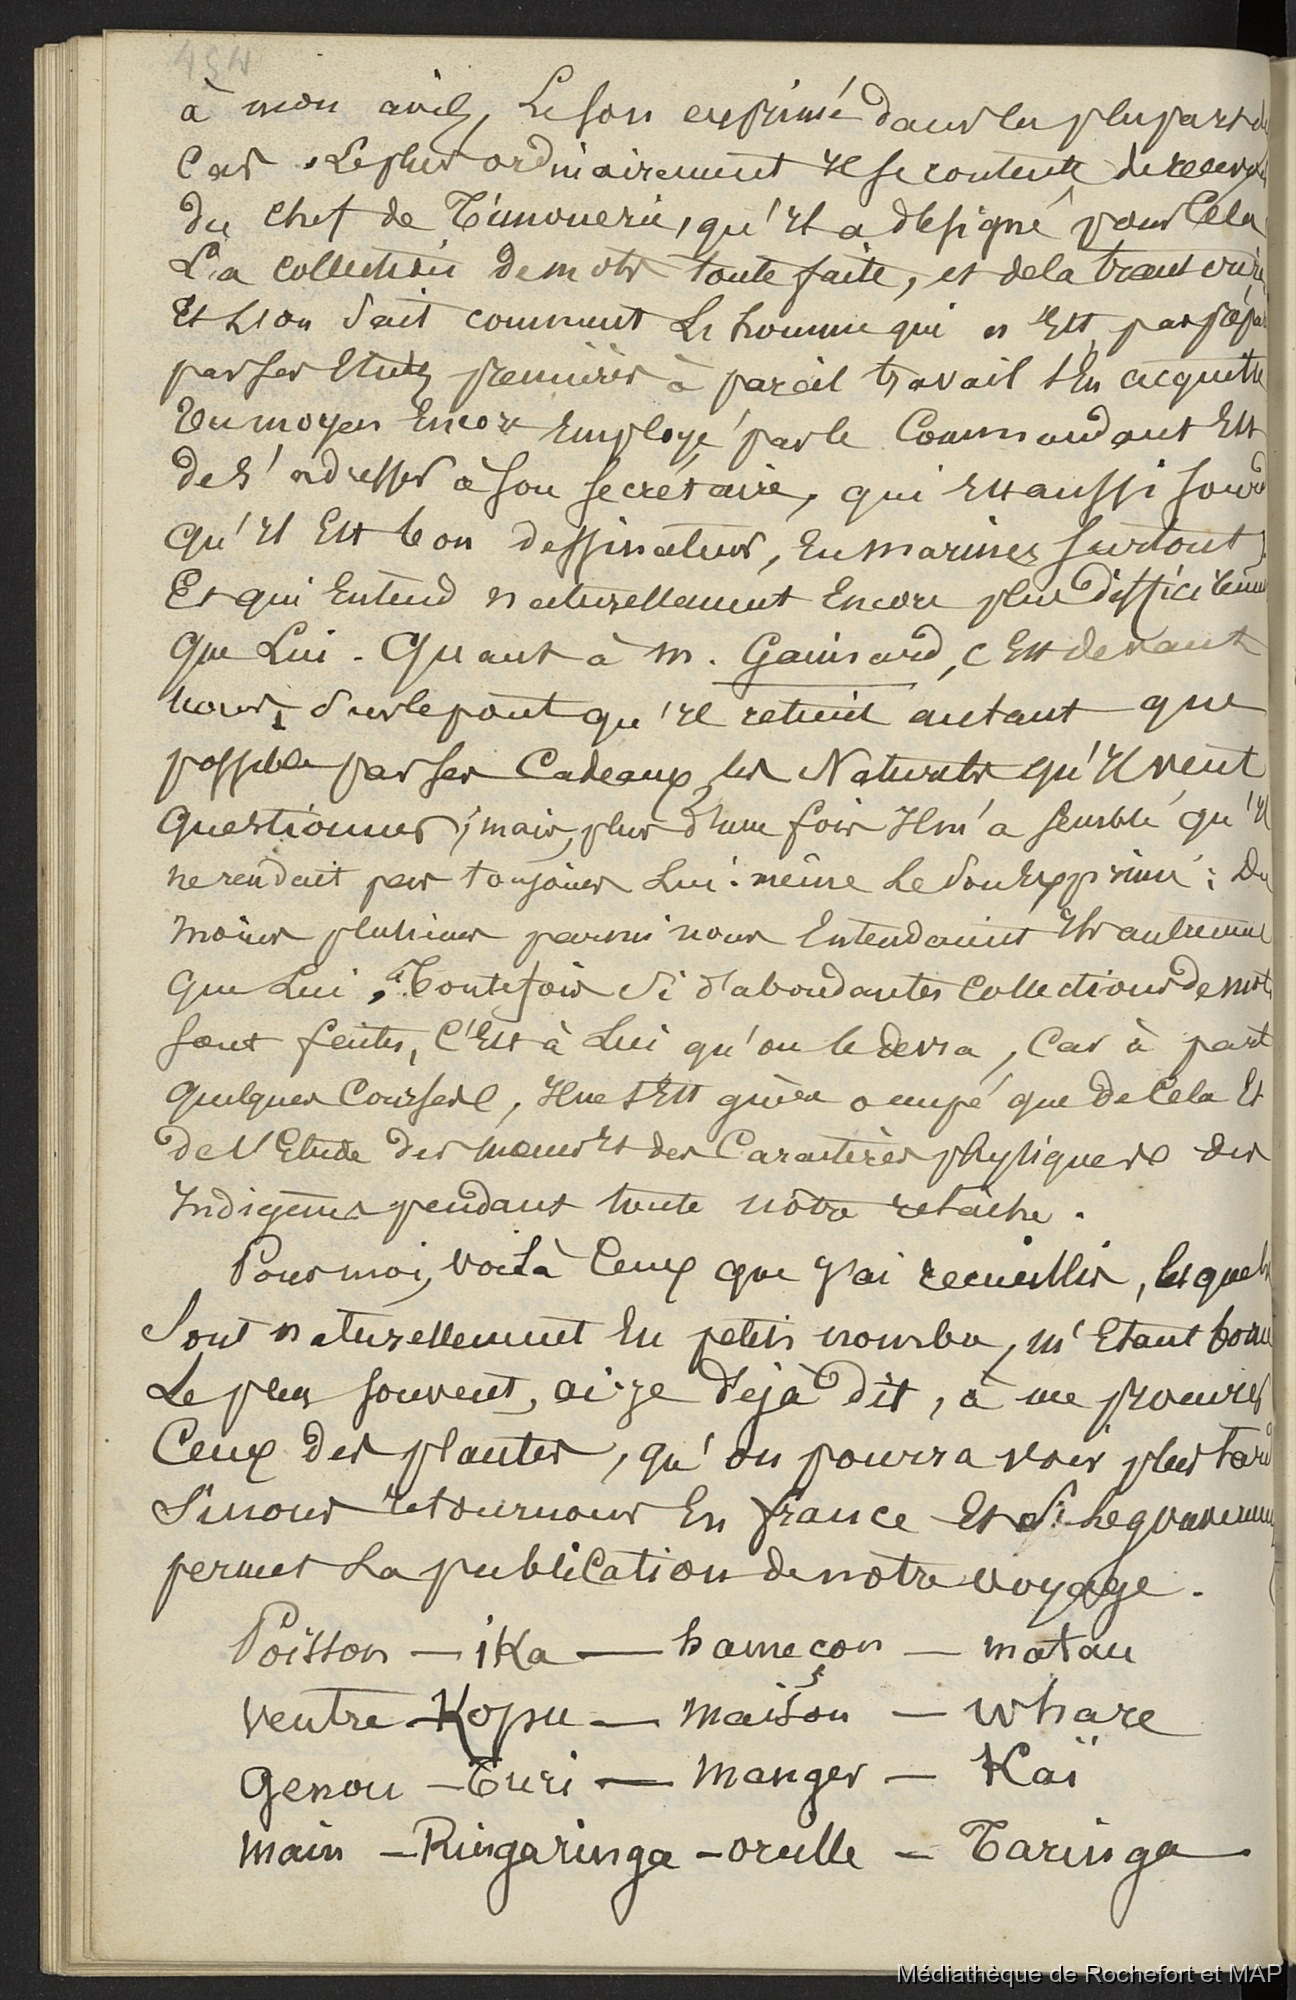 454
à mon avis, Le son exprimé dans la plupart des
Cas. Le plus ordinairement il se contente de recevoir
du chef de Timonerie, qu'il a désigné pour Cela
La collection de mots toute faite, et de la transcrire
Et L'on sait comment L'homme qui n'Est pas préparé
par ses Etudes premières à pareil travail s'En acquitte
Un moyen Encore Employé par le Commandant Est
de s'adresser à son secrétaire, qui Est aussi sourd
qu'il Est bon dessinateur, En marines surtout,
Et qui Entend naturellement Encore plus difficilement
que Lui. Quant à M. Gaimard, c'Est devant
nous, sur le pont qu'il retient autant que
possible par ses Cadeaux, les Naturels qu'il veut
questionner; mais, plus d'une fois Il m'a semblé qu'il
ne rendait pas toujours Lui-même Le son Exprimé: Du
moins plusieurs parmi nous Entendaient autrement
que Lui. Toutefois si d'abondantes collections de mots
sont faites, C'Est à Lui qu'on le devra, Car à part
quelques Courses, Il ne s'Est guère occupé que de Cela Et
de l'Etude des mœurs Et des Caractères physiques des
Indigènes pendant toute notre relâche.
Pour moi, voilà Ceux que j'ai recueillis, lesquels
Sont naturellement En petit nombre, m'Etant borné
Le plus souvent, ai-je déjà dit, à me procurer
Ceux des plantes, qu'on pourra voir plus tard
Si nous retournons En france Et si Le gouvernement
permet La publication de notre voyage.
Poisson — ika — hameçon — matau
Ventre — Kopu — Maison — Whare
Genou — Turi — Manger — Kaï
Main — Ringaringa — oreille — Taringa
Médiathèque de Rochefort et MAP